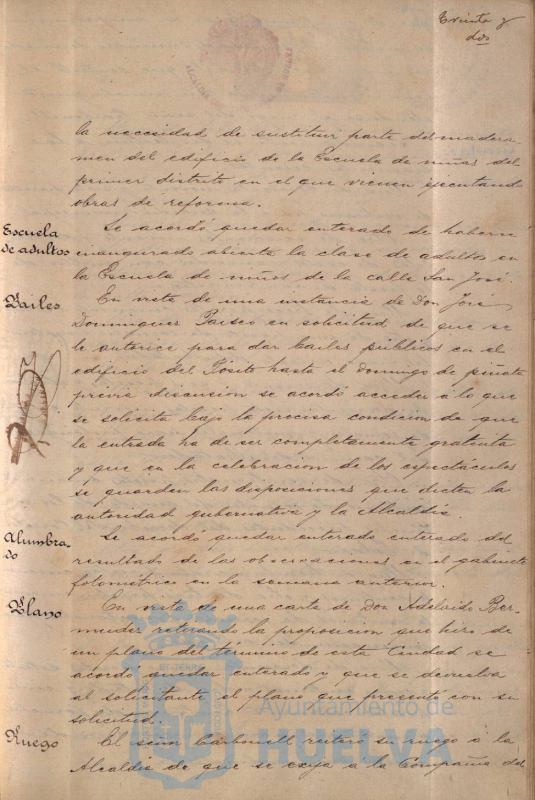 Treinta y
dos
la necesidad de sustituir parte del madera-
men del edificio de la Escuela de niñas del
primer distrito en el que vienen ejecutando
obras de reforma.
Escuela
de adultos
Se acordó quedar enterado de haberse
inaugurado abierta la clase de adultos en
la Escuela de niños de la calle San José.
Bailes
En vista de una instancia de Don José
Dominguez en solicitud de que se
le autorice para dar bailes públicos en el
edificio del Pósito hasta el domingo de piñata
prévia discusion se acordó acceder á lo que
se solicita bajo la precisa condicion de que
la entrada ha de ser completamente gratuita
y que en la celebracion de los espectáculos
se guarden las disposiciones que dicten la
autoridad gubernativa y la Alcaldía.
Alumbra-
do
Se acordó quedar enterado enterado del
resultado de las observaciones en el gabinete
fotométrico en la semana anterior.
Plano
En vista de una carta de Don Adelaido Ber-
mudez retirando la proposicion que hizo de
un plano del término de esta Ciudad se
acordó quedar enterado y que se devuelva
al solicitante el plano que presentó con su
solicitud.
Ruego
El señor Carbonell reiteró su ruego á la
Alcaldía de que se exija á la Compañia del
Ayuntamiento de
HUELVA